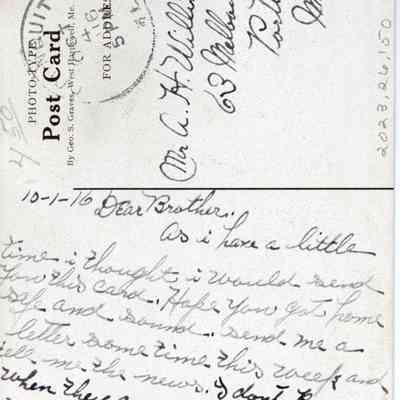 PHOTO-TYPE
Post Card
By Geo. S. Graves, West Harpswell, Me.
FOR ADDRE
Mr A. H. Willi
63 Melbo
Port
M
4.50
2023.26.150
10-1-16 Dear Brother.
as i have a little
time i thought i would send
you this card. Hope you got home
safe and sound. send me a
letter some time this week and
tell me the news. I don't
when they